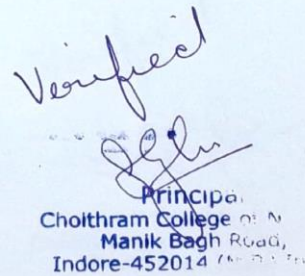 Verified
Principal
Choithram College of N
Manik Bagh Road,
Indore-452014